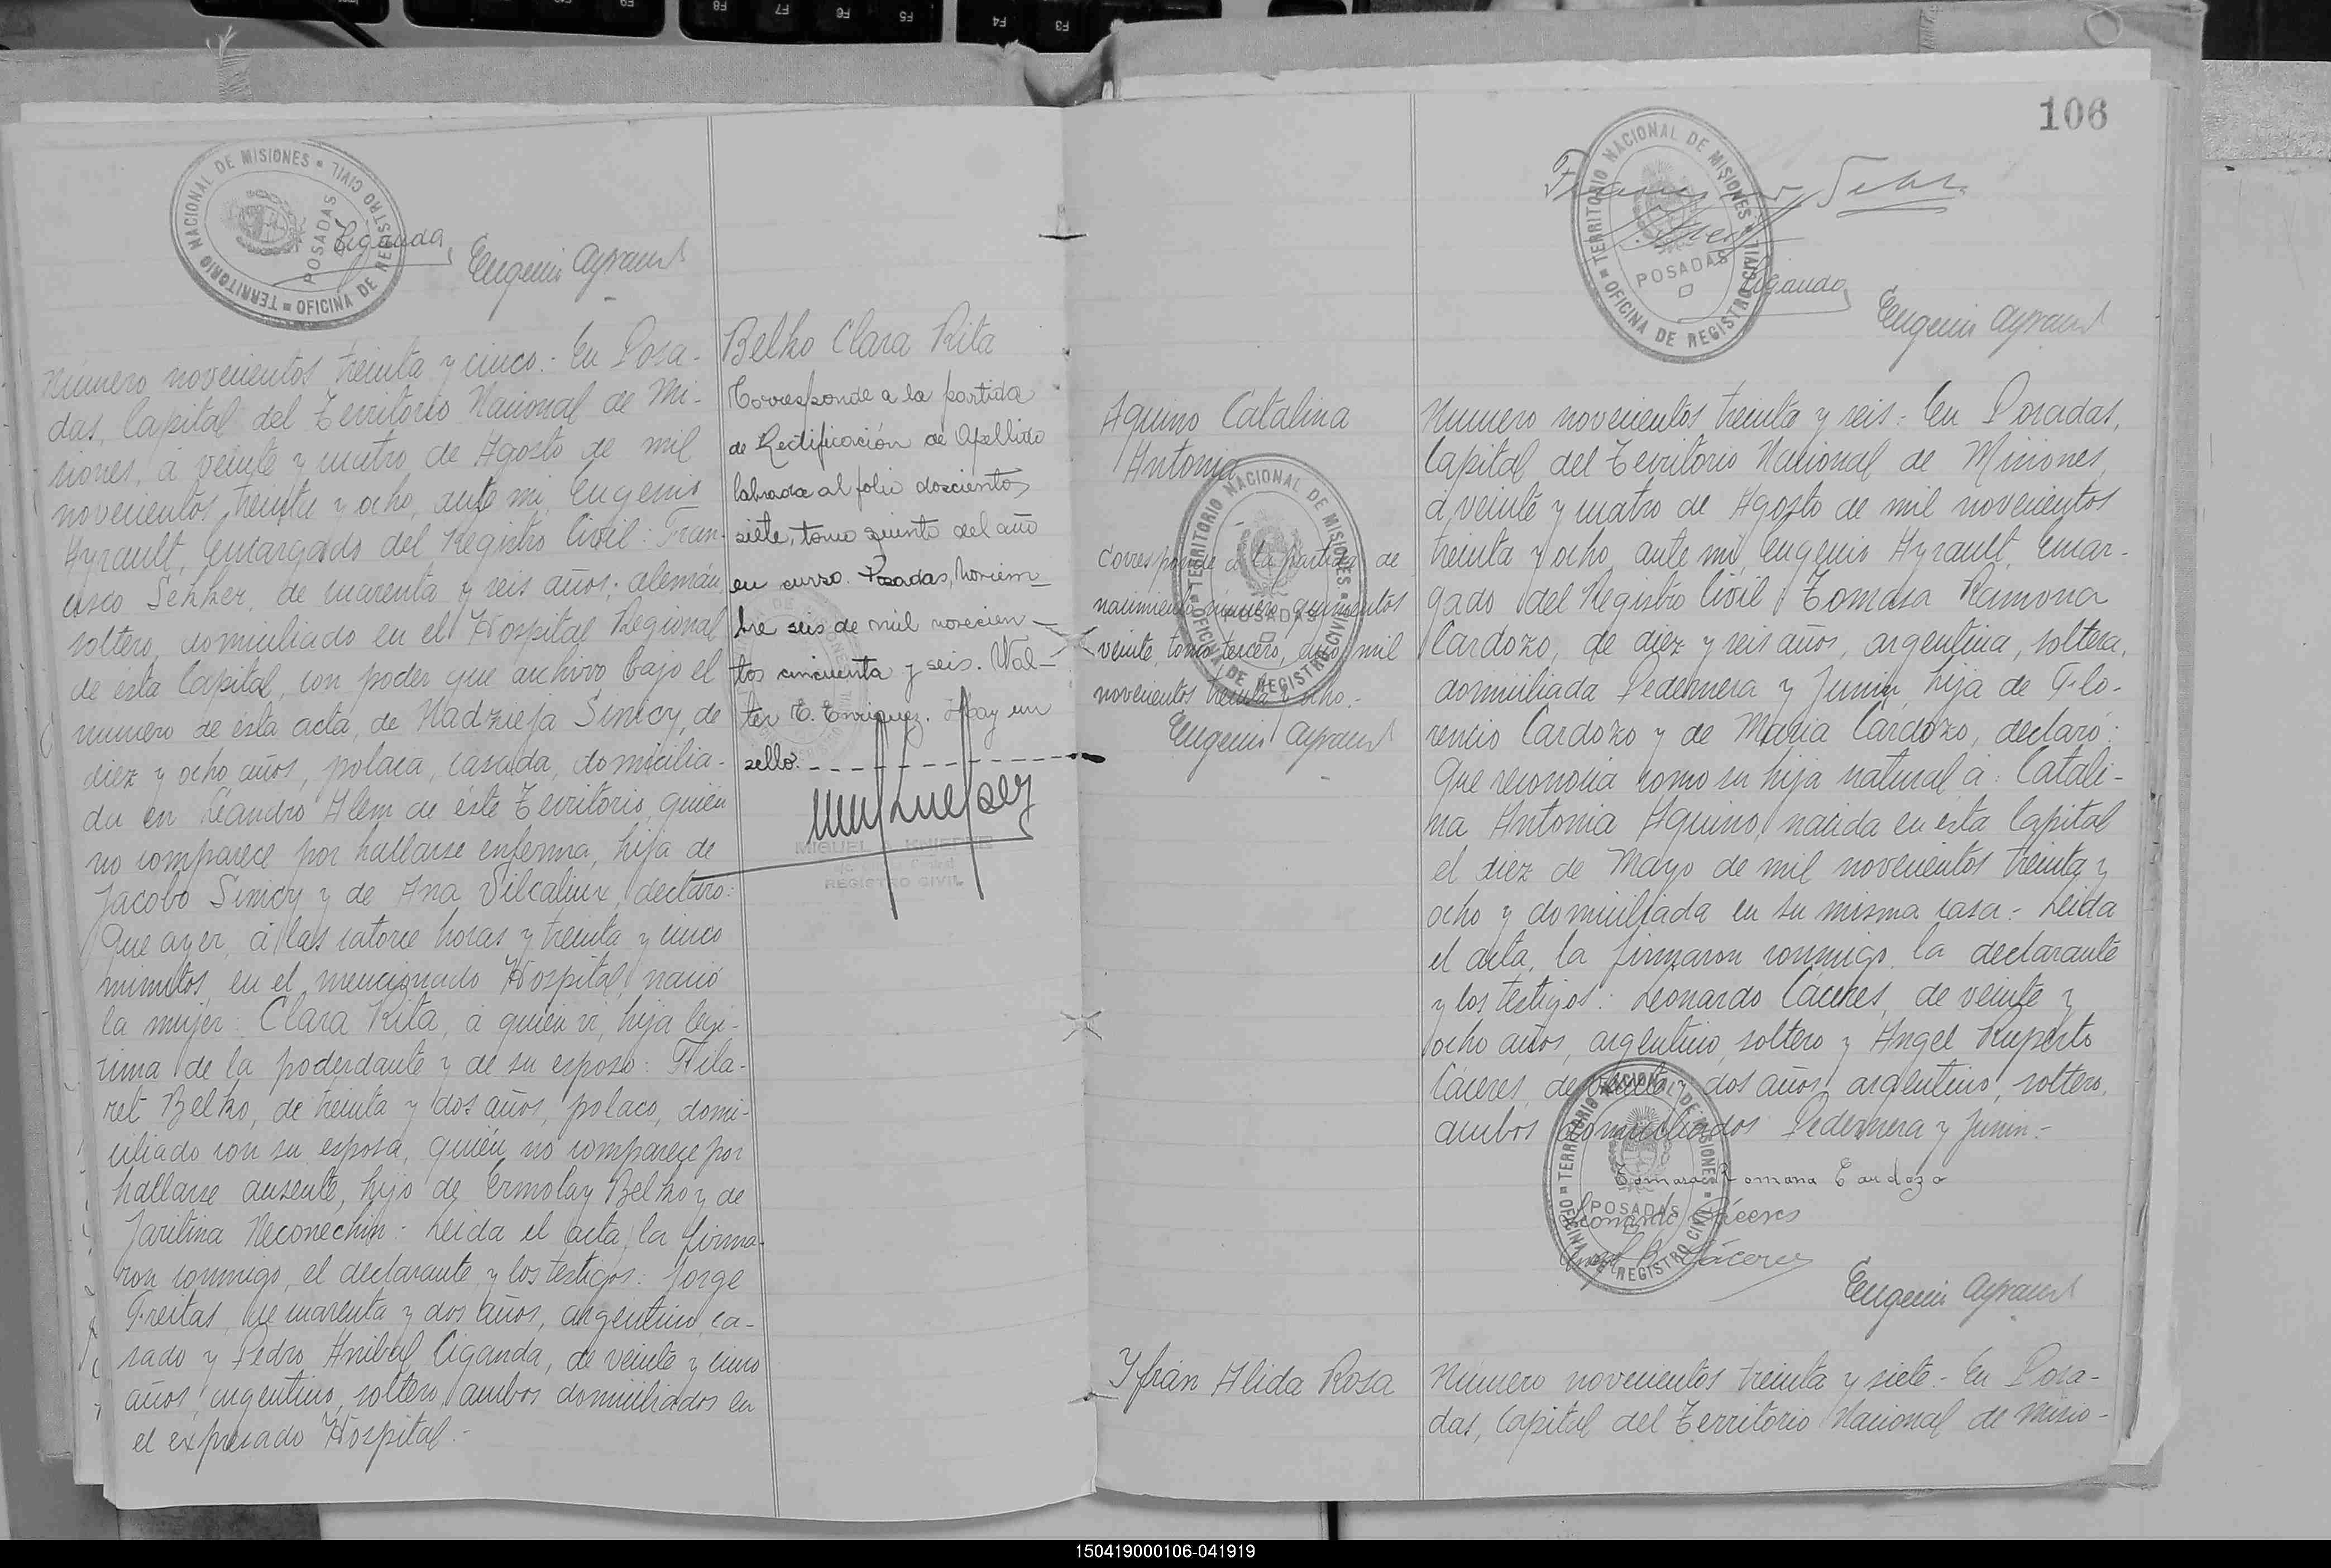 TERRITORIO NACIONAL DE MISIONES
OFICINA DE REGISTRO CIVIL
POSADAS
Ciganda
Eugenio Ayrault
Numero novecientos treinta y cinco.- En Posa-
das, Capital del Territorio Nacional de Mi-
siones, á veinte y cuatro de Agosto de mil
novecientos treinta y ocho, ante mi, Eugenio
Ayrault, Encargado del Registro Civil: Fran-
cisco Sekker, de cuarenta y seis años, alemán,
soltero, domiciliado en el Hospital Regional
de ésta Capital, con poder que archivo bajo el
numero de ésta acta, de Nadzieja Sinicy, de
diez y ocho años, polaca, casada, domicilia-
da en Leandro Alem de éste Territorio, quién
no comparece por hallarse enferma, hija de
Jacobo Sinicy y de Ana Silcaliux, declaro:
Que ayer, á las catorce horas y treinta y cinco
minutos, en el mencionado Hospital, nació
la mujer: Clara Rita, á quién vi, hija legi-
tima de la poderdante y de su esposo: Fila-
ret Belko, de treinta y dos años, polaco, domi-
ciliado con su esposa, quién no comparece por
hallarse ausente, hijo de Ermolay Belko y de
Jaritina Neconechin.- Leida el acta, la firma-
ron conmigo, el declarante y los testigos: Jorge
Freitas, de cuarenta y dos años, argentino, ca-
sado y Pedro Anibal Ciganda, de veinte y cinco
años, argentino, soltero, ambos domiciliados en
el expresado Hospital.-
Belko Clara Rita
Corresponde a la partida
de Rectificación de Apellido
labrada al folio doscientos
siete, tomo quinto del año
en curso. Posadas, Noviem-
bre seis de mil novecien-
tos cincuenta y seis. Wal-
ter E. Enriquez. Hay un
sello.
MIGUEL
REGISTRO CIVIL
106
TERRITORIO NACIONAL DE MISIONES
OFICINA DE REGISTRO CIVIL
POSADAS
Ciganda
Eugenio Ayrault
Aquino Catalina
Antonia
TERRITORIO NACIONAL DE MISIONES
OFICINA DE REGISTRO CIVIL
POSADAS
Corresponde a la partida de
nacimiento número quinientos
veinte, tomo tercero, año mil
novecientos treinta y ocho.-
Eugenio Ayrault
Numero novecientos treinta y seis.- En Posadas,
Capital del Territorio Nacional de Misiones,
á veinte y cuatro de Agosto de mil novecientos
treinta y ocho, ante mi, Eugenio Ayrault, Encar-
gado del Registro Civil: Tomasa Ramona
Cardozo, de diez y seis años, argentina, soltera,
domiciliada Pedernera y Junin, hija de Flo-
rencio Cardozo y de Maria Cardozo, declaró:
Que reconocia como su hija natural á: Catali-
na Antonia Aquino, nacida en ésta Capital
el diez de Mayo de mil novecientos treinta y
ocho y domiciliada en su misma casa.- Leida
el acta, la firmaron conmigo, la declarante
y los testigos: Leonardo Cáceres, de veinte y
ocho años, argentino, soltero y Angel Ruperto
Cáceres, de veinte y dos años, argentino, soltero,
ambos domiciliados Pedernera y Junin.-
TERRITORIO NACIONAL DE MISIONES
OFICINA DE REGISTRO CIVIL
POSADAS
Tomasa Romana Cardozo
Leonardo Cáceres
Angel R. Cáceres
Eugenio Ayrault
Yfrán Alida Rosa
Numero novecientos treinta y siete.- En Posa-
das, Capital del Territorio Nacional de Misio-
150419000106-041919